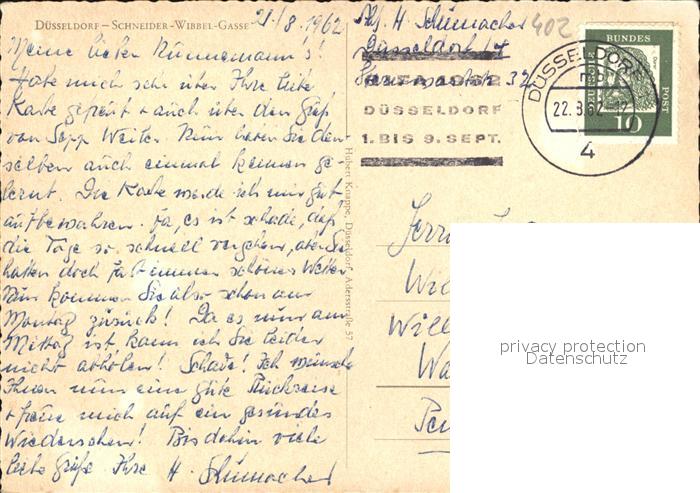 DÜSSELDORF – SCHNEIDER-WIBBEL-GASSE
21/8. 1962
Meine lieben Nünnemann's!
Habe mich sehr über Ihre liebe
Karte gefreut + auch über den Gruß
von Sepp Weiter. Nun haben Sie den-
selben auch einmal kennen ge-
lernt. Die Karte werde ich mir gut
aufbewahren. Ja, es ist schade, daß
die Tage so schnell vergehen, aber Sie
hatten doch fast immer schönes Wetter.
Nun kommen Sie also schon am
Montag zurück! Da es nun am
Mittag ist kann ich Sie leider
nicht abholen! Schade! Ich wünsche
Ihnen nun eine gute Rückreise
+ freue mich auf ein gesundes
Wiedersehen! Bis dahin viele
liebe Grüße Ihre H. Schumacher
Hubert Knuppe, Düsseldorf, Adersstraße 57
Abs. H. Schumacher
Düsseldorf
402
1962
DÜSSELDORF
1. BIS 9. SEPT.
DÜSSELDORF
22.8.62-12
4
BUNDES
POST
10
Will
privacy protection
Datenschutz